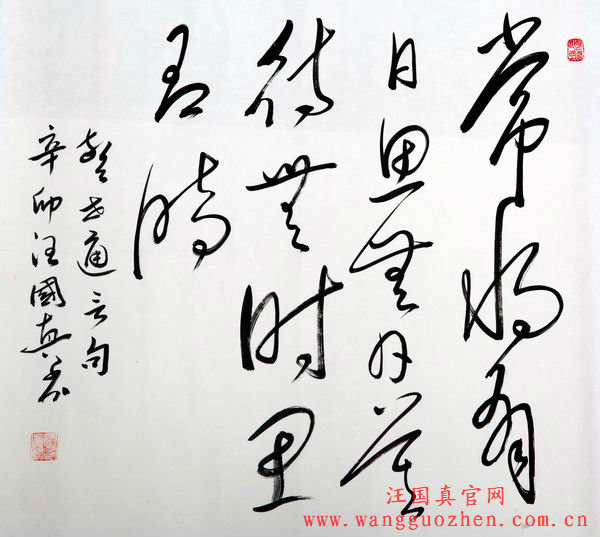 常将有
日思無日莫
待無时思
有時
警世通言句
辛卯汪國真书
汪国真官网
www.wangguozhen.com.cn